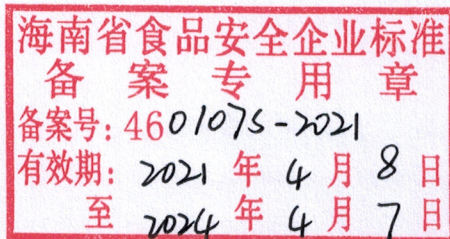 海南省食品安全企业标准
备案专用章
备案号: 4601075-2021
有效期: 2021年4月8日
至2024年4月7日